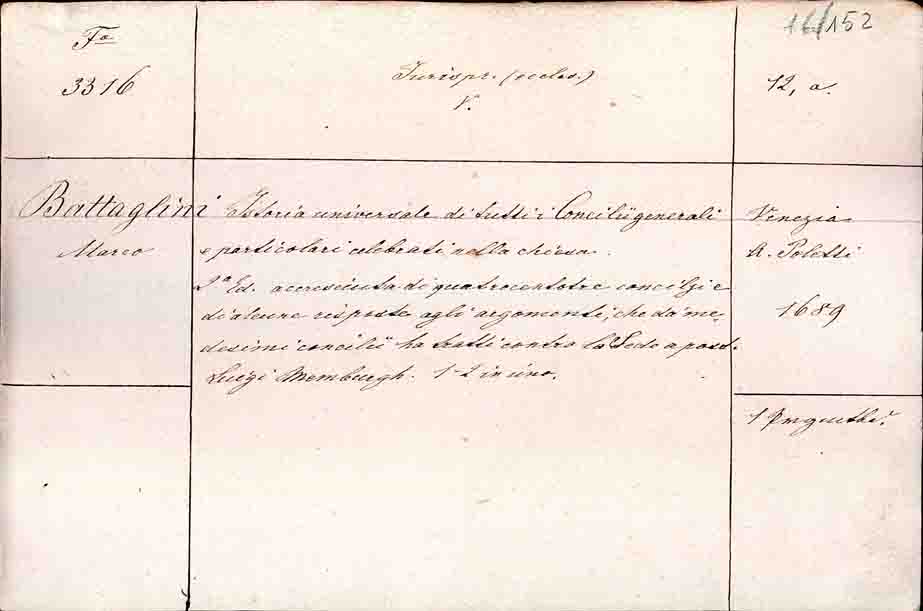 Fa
3316
Jurispr. (eccles.)
V.
152
12, a.
Battaglini
Marco
Istoria universale di tutti i Concilii generali
e particolari celebrati nella chiesa.
2a Ed. accresciuta di quatrocentotre concilj e
di alcune risposte agli argomenti, che da me-
desimi concilii ha tratti contro la Sede apost.
Luigi Memburgh. 1-2 in uno.
Venezia
A. Poletti
1689
1 Prgmtbd.